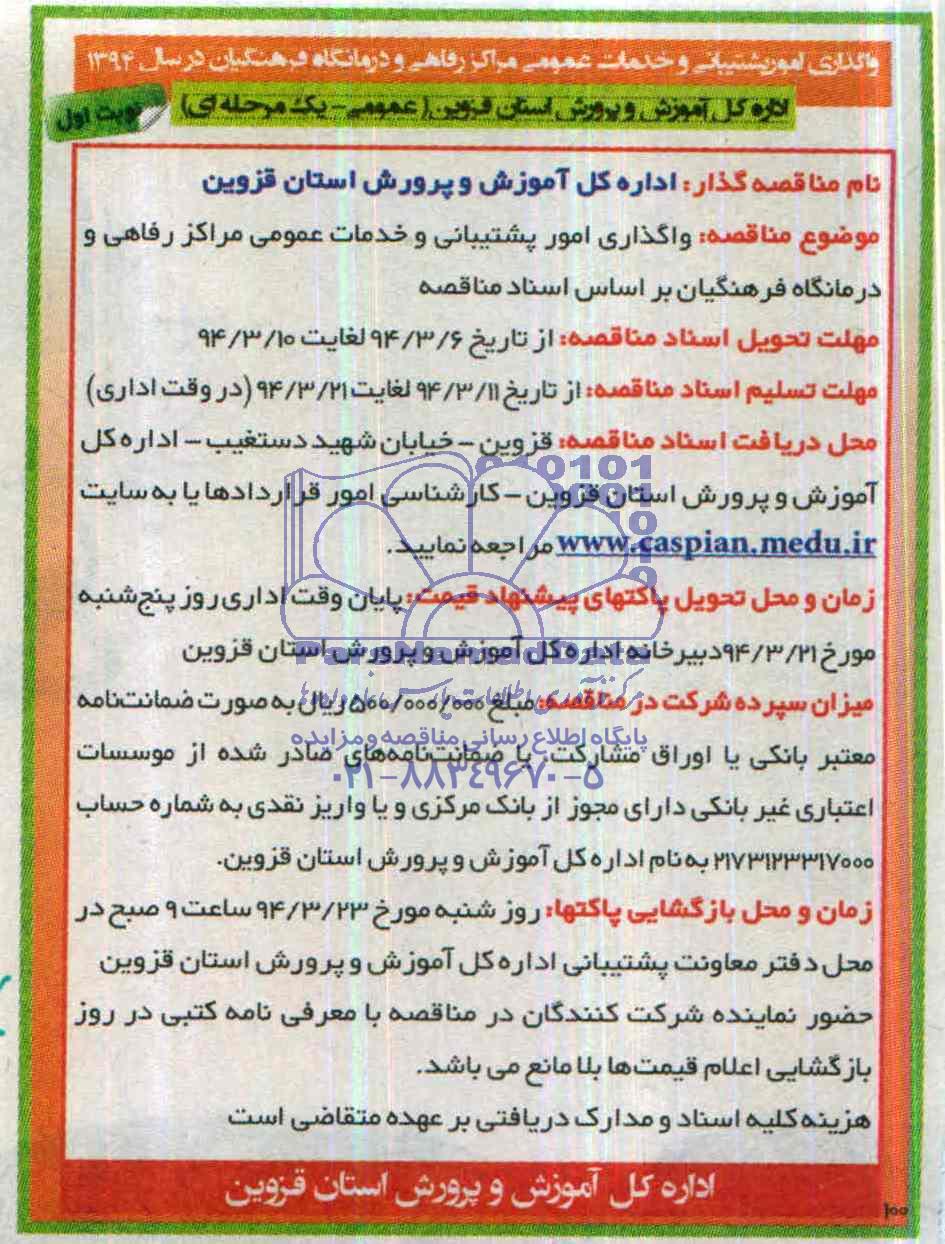 واگذاری امور پشتیبانی و خدمات عمومی مراکز رفاهی و درمانگاه فرهنگیان در سال ۱۳۹۴
اداره کل آموزش و پرورش استان قزوین (عمومی - یک مرحله ای)
نوبت اول
نام مناقصه گذار: اداره کل آموزش و پرورش استان قزوین
موضوع مناقصه: واگذاری امور پشتیبانی و خدمات عمومی مراکز رفاهی و
درمانگاه فرهنگیان بر اساس اسناد مناقصه
مهلت تحویل اسناد مناقصه: از تاریخ ۹۴/۳/۶ لغایت ۹۴/۳/۱۰
مهلت تسلیم اسناد مناقصه: از تاریخ ۹۴/۳/۱۱ لغایت ۹۴/۳/۲۱ (در وقت اداری)
محل دریافت اسناد مناقصه: قزوین - خیابان شهید دستغیب - اداره کل
آموزش و پرورش استان قزوین - کارشناسی امور قراردادها یا به سایت
www.caspian.medu.ir مراجعه نمایید.
زمان و محل تحویل پاکتهای پیشنهاد قیمت: پایان وقت اداری روز پنج‌شنبه
مورخ ۹۴/۳/۲۱ دبیرخانه اداره کل آموزش و پرورش استان قزوین
میزان سپرده شرکت در مناقصه: مبلغ ۵۰۰/۰۰۰/۰۰۰ ریال به صورت ضمانت‌نامه
معتبر بانکی یا اوراق مشارکت، یا ضمانت‌نامه‌های صادر شده از موسسات
اعتباری غیر بانکی دارای مجوز از بانک مرکزی و یا واریز نقدی به شماره حساب
۲۱۷۳۱۲۳۳۱۷۰۰۰ به نام اداره کل آموزش و پرورش استان قزوین.
زمان و محل بازگشایی پاکتها: روز شنبه مورخ ۹۴/۳/۲۳ ساعت ۹ صبح در
محل دفتر معاونت پشتیبانی اداره کل آموزش و پرورش استان قزوین
حضور نماینده شرکت کنندگان در مناقصه با معرفی نامه کتبی در روز
بازگشایی اعلام قیمت‌ها بلامانع می باشد.
هزینه کلیه اسناد و مدارک دریافتی بر عهده متقاضی است
اداره کل آموزش و پرورش استان قزوین
۱۰۰
پایگاه اطلاع رسانی مناقصه و مزایده
۰۲۱-۸۸۳۴۹۶۷۰-۵